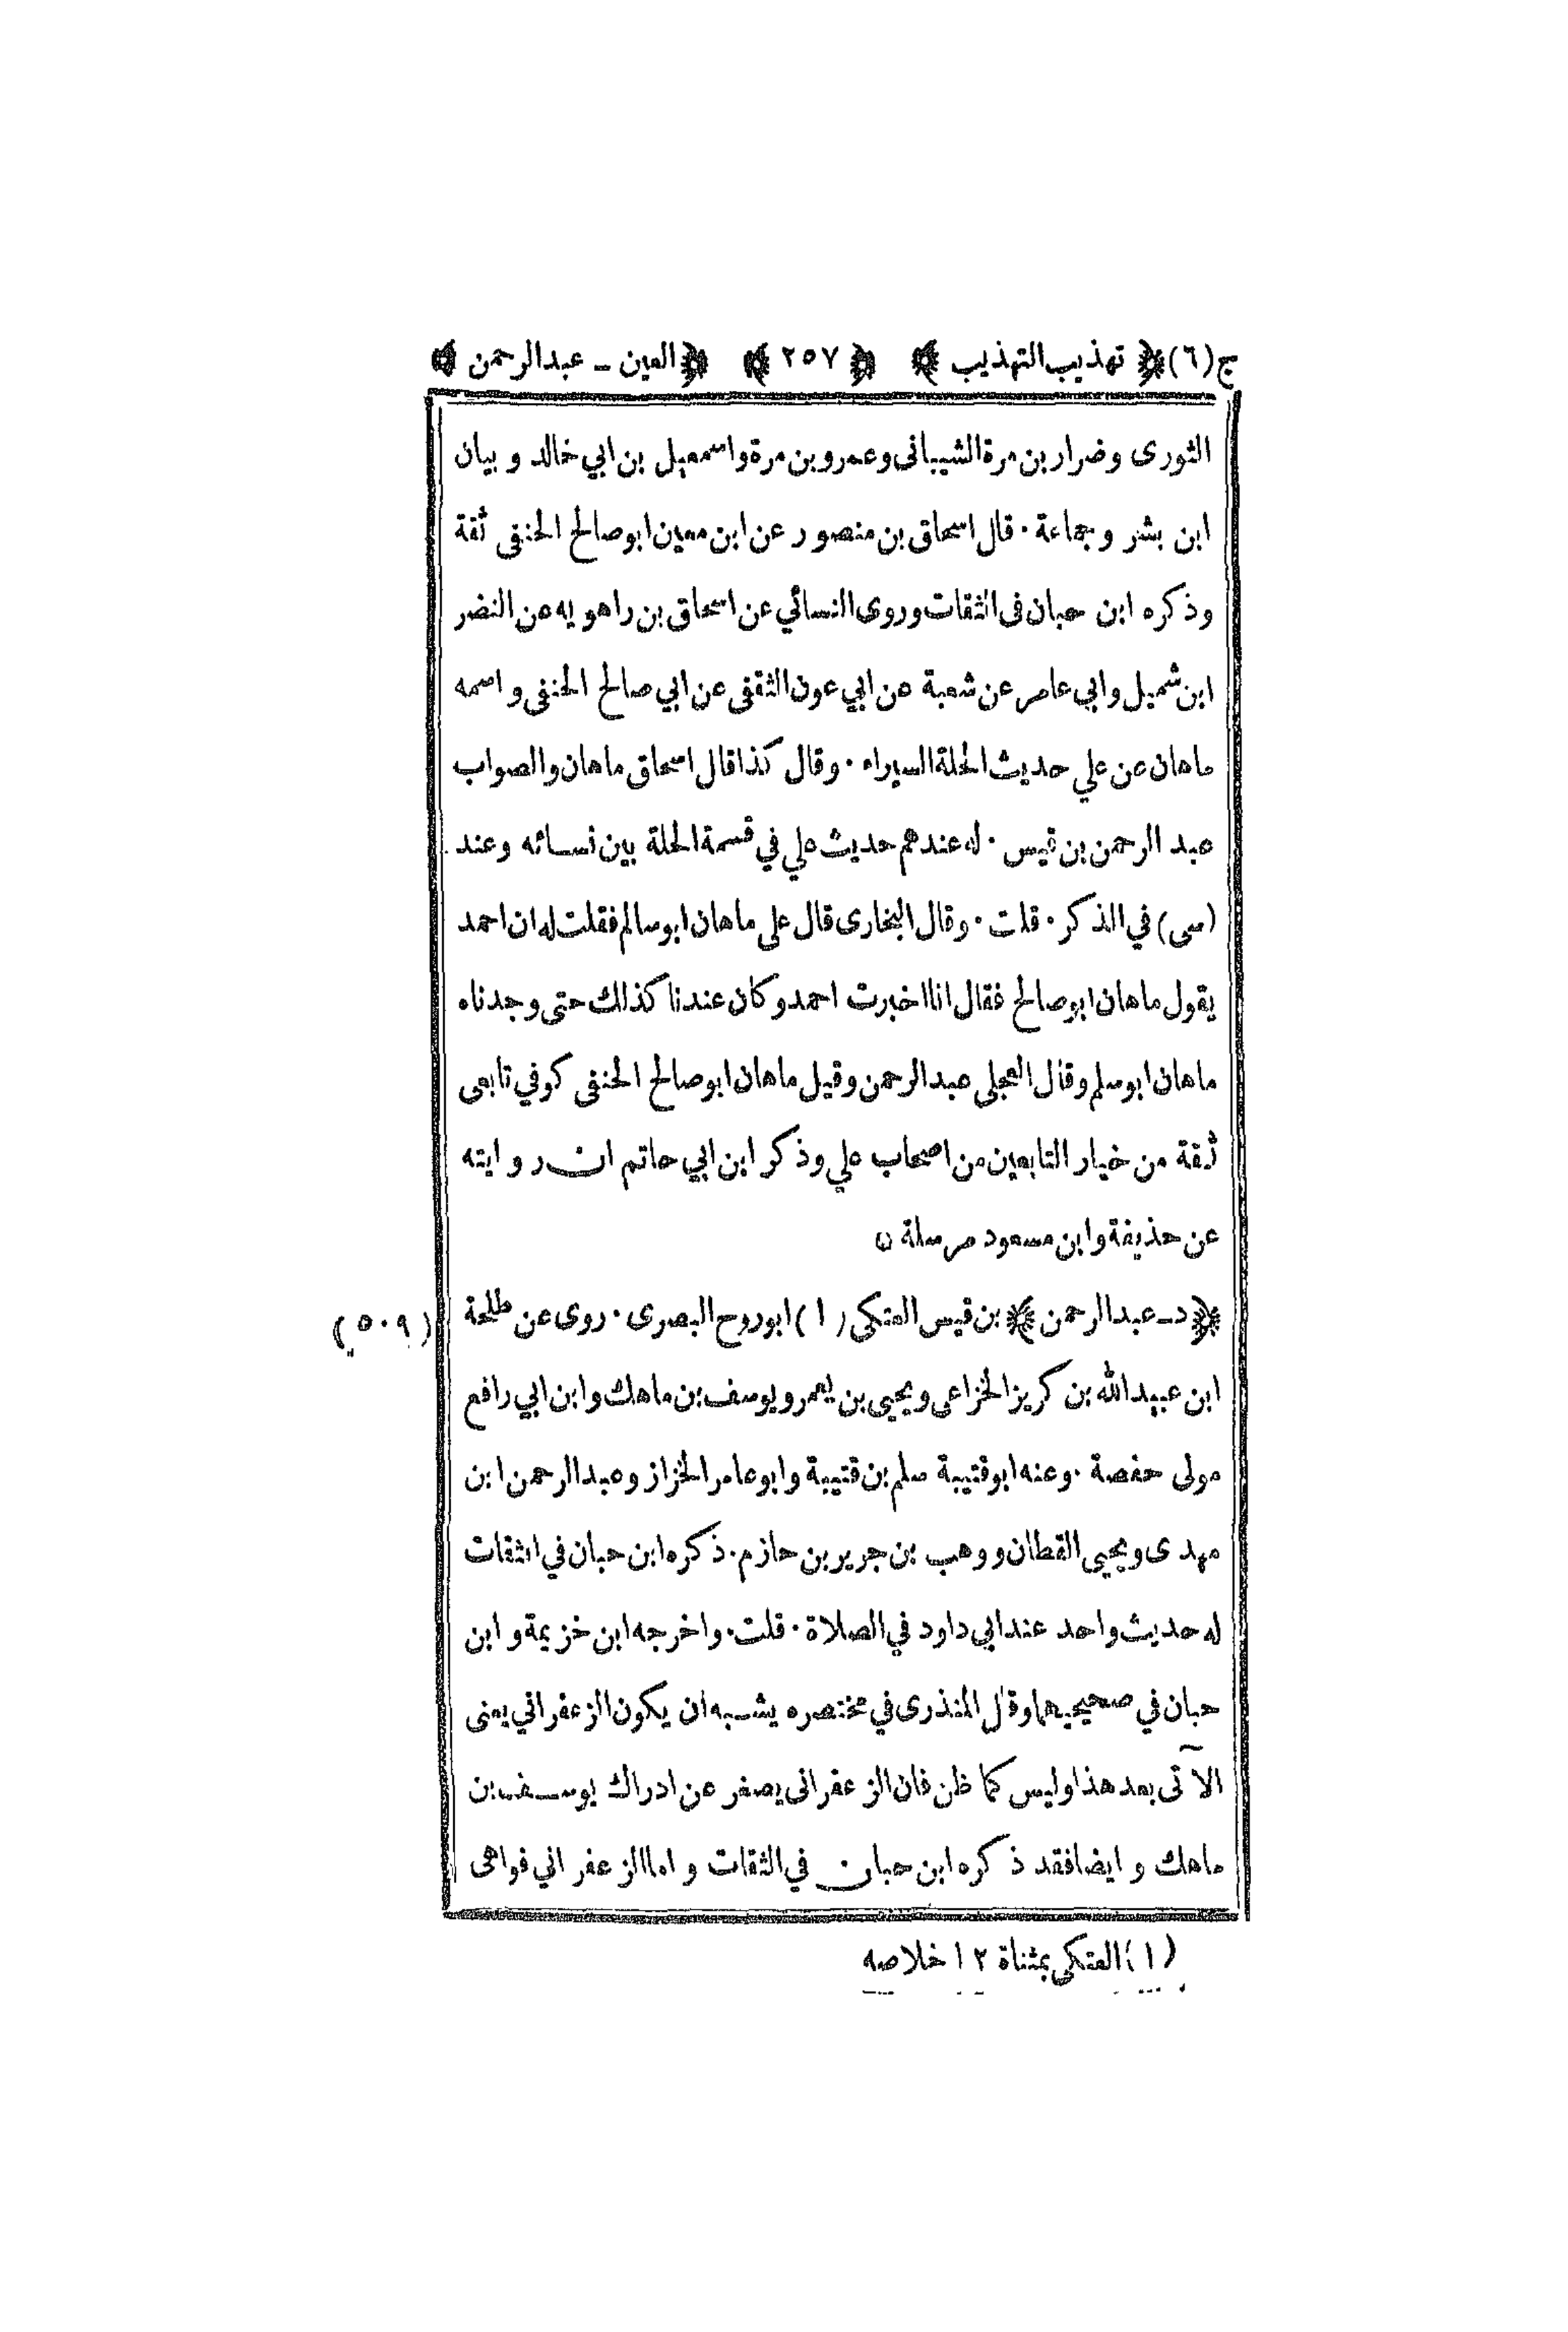 ج(٦) ﴿ تهذيب التهذيب ﴾ ﴿ ٢٥٧ ﴾ ﴿ العين ـ عبدالرحمن ﴾
الثورى وضرار بن مرة الشيبانى وعمرو بن مرة واسمعيل بن ابي خالد و بيان
ابن بشر وجماعة ٠ قال اسحاق بن منصور عن ابن معين ابو صالح الحنفى ثقة
وذكره ابن حبان فى الثقات وروى النسائي عن اسحاق بن راهويه عن النضر
ابن شميل وابي عامر عن شعبة عن ابي عون الثقفى عن ابي صالح الحنفى واسمه
ماهان عن علي حديث الحلة السيراء ٠ وقال كذا قال اسحاق ماهان والصواب
عبد الرحمن بن قيس ٠ له عندهم حديث علي في قسمة الحلة بين نسائه وعند
(سى) في الذكر ٠ قلت ٠ وقال البخارى قال على ماهان ابو سالم فقلت له ان احمد
يقول ماهان ابو صالح فقال انا اخبرت احمد وكان عندنا كذلك حتى وجدناه
ماهان ابو سلم وقال العجلى عبد الرحمن وقيل ماهان ابو صالح الحنفى كوفي تابعى
ثقة من خيار التابعين من اصحاب علي وذكر ابن ابي حاتم ان روايته
عن حذيفة وابن مسعود مرسلة ٥
﴿ د ـ عبد الرحمن ﴾ بن قيس العتكى (١) ابو روح البصرى ٠ روى عن طلحة
(٥٠٩)
ابن عبيد الله بن كريز الخزاعى ويحيى بن يعمر ويوسف بن ماهك وابن ابي رافع
مولى حفصة ٠ وعنه ابو قتيبة سلم بن قتيبة وابو عامر الخزاز وعبد الرحمن ابن
مهدى ويحيى القطان ووهب بن جرير بن حازم ٠ ذكره ابن حبان في الثقات
له حديث واحد عند ابي داود في الصلاة ٠ قلت ٠ واخرجه ابن خزيمة وابن
حبان في صحيحيهما وقال المنذرى في مختصره يشبه ان يكون الزعفراني يعنى
الآتى بعد هذا وليس كما ظن فان الزعفرانى يصغر عن ادراك يوسف بن
ماهك وايضا فقد ذكره ابن حبان في الثقات واما الزعفراني فواهى
(١) العتكى بمثناة ١٢ خلاصه